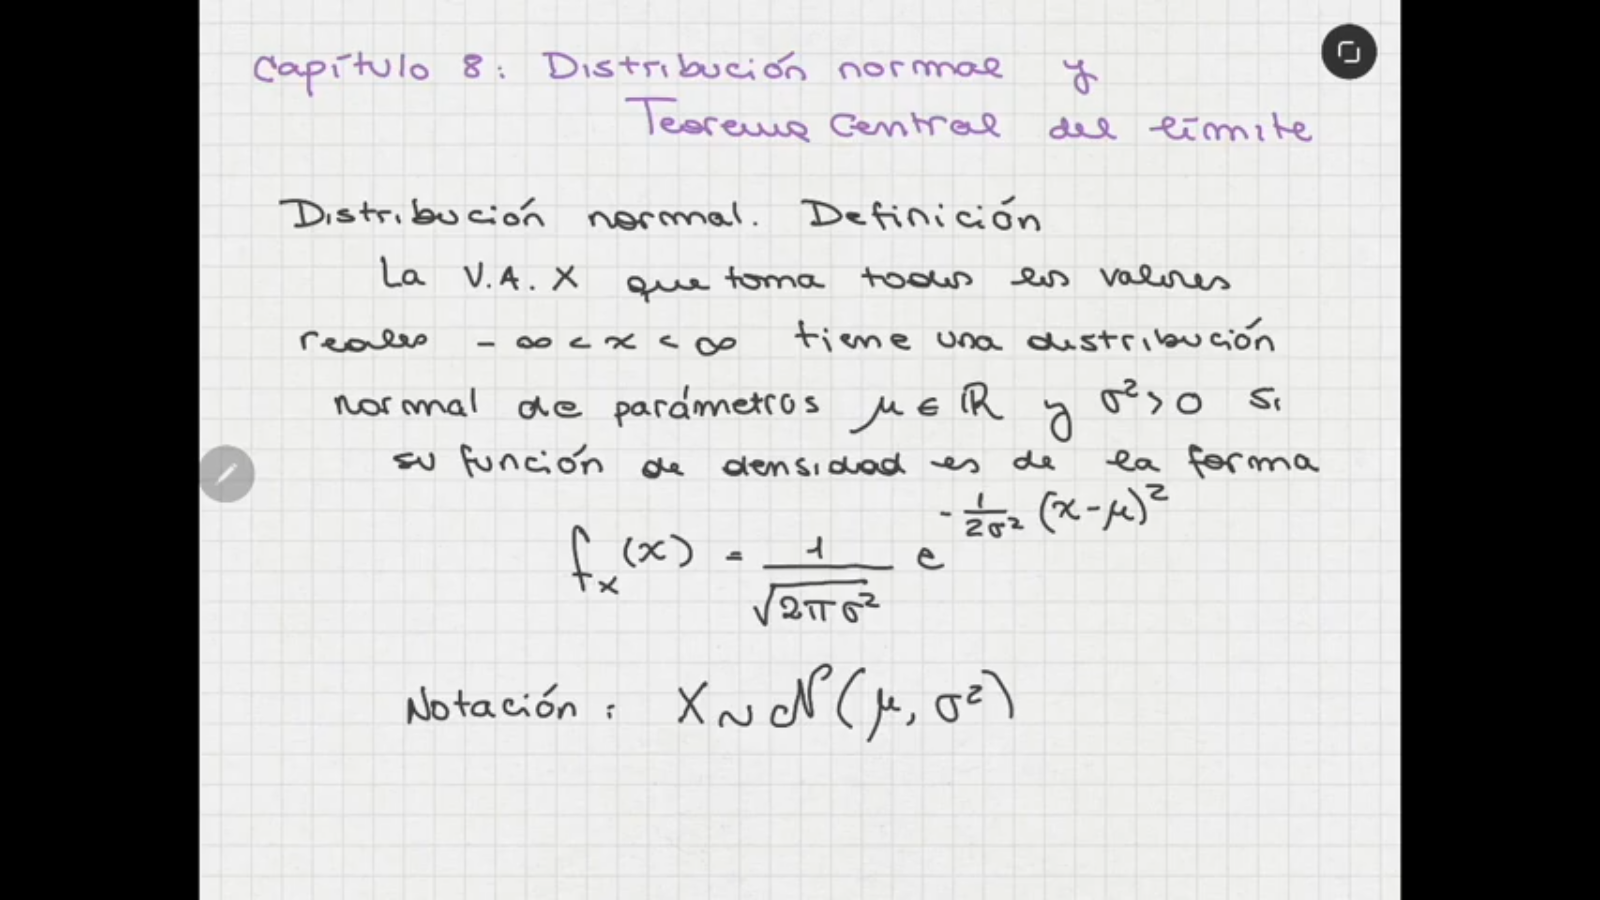 Capítulo 8: Distribución normal y
Teorema Central del límite
Distribución normal. Definición
La V.A. X que toma todos los valores
reales -∞ < x < ∞ tiene una distribución
normal de parámetros μ ∈ ℝ y σ² > 0 si
su función de densidad es de la forma
f_X(x) = 1/√(2πσ²) e^(-1/(2σ²) (x-μ)²)
Notación: X ~ 𝒩(μ, σ²)